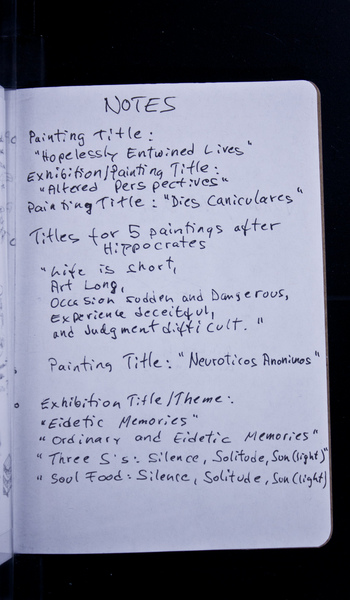 NOTES
Painting Title:
"Hopelessly Entwined Lives"
Exhibition/Painting Title:
"Altered Perspectives"
Painting Title: "Dies Caniculares"
Titles for 5 paintings after
Hippocrates
"Life is short,
Art Long,
Occasion sudden and Dangerous,
Experience deceitful,
and Judgment difficult."
Painting Title: "Neuroticos Anonimos"
Exhibition Title/Theme:
"Eidetic Memories"
"Ordinary and Eidetic Memories"
"Three S's: Silence, Solitude, Sun(light)"
"Soul Food: Silence, Solitude, Sun(light)